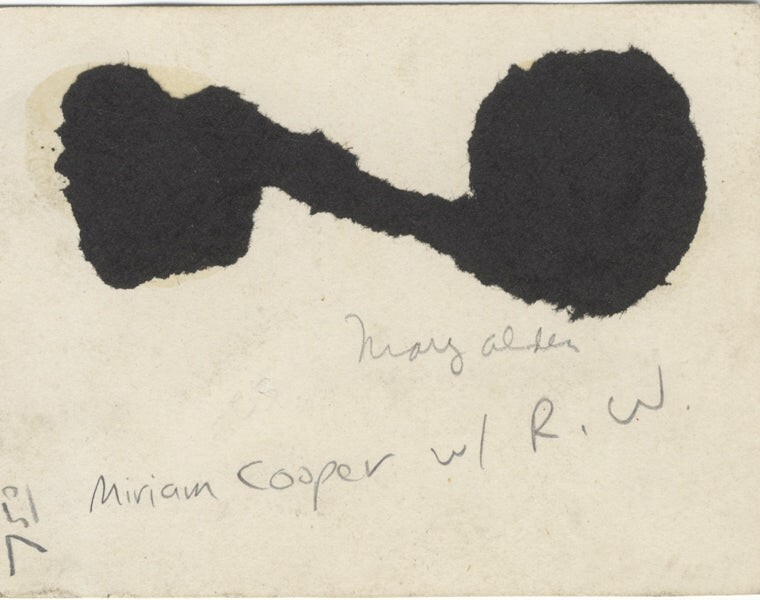 Mary Alden
Miriam Cooper w/ R. W.
7 50